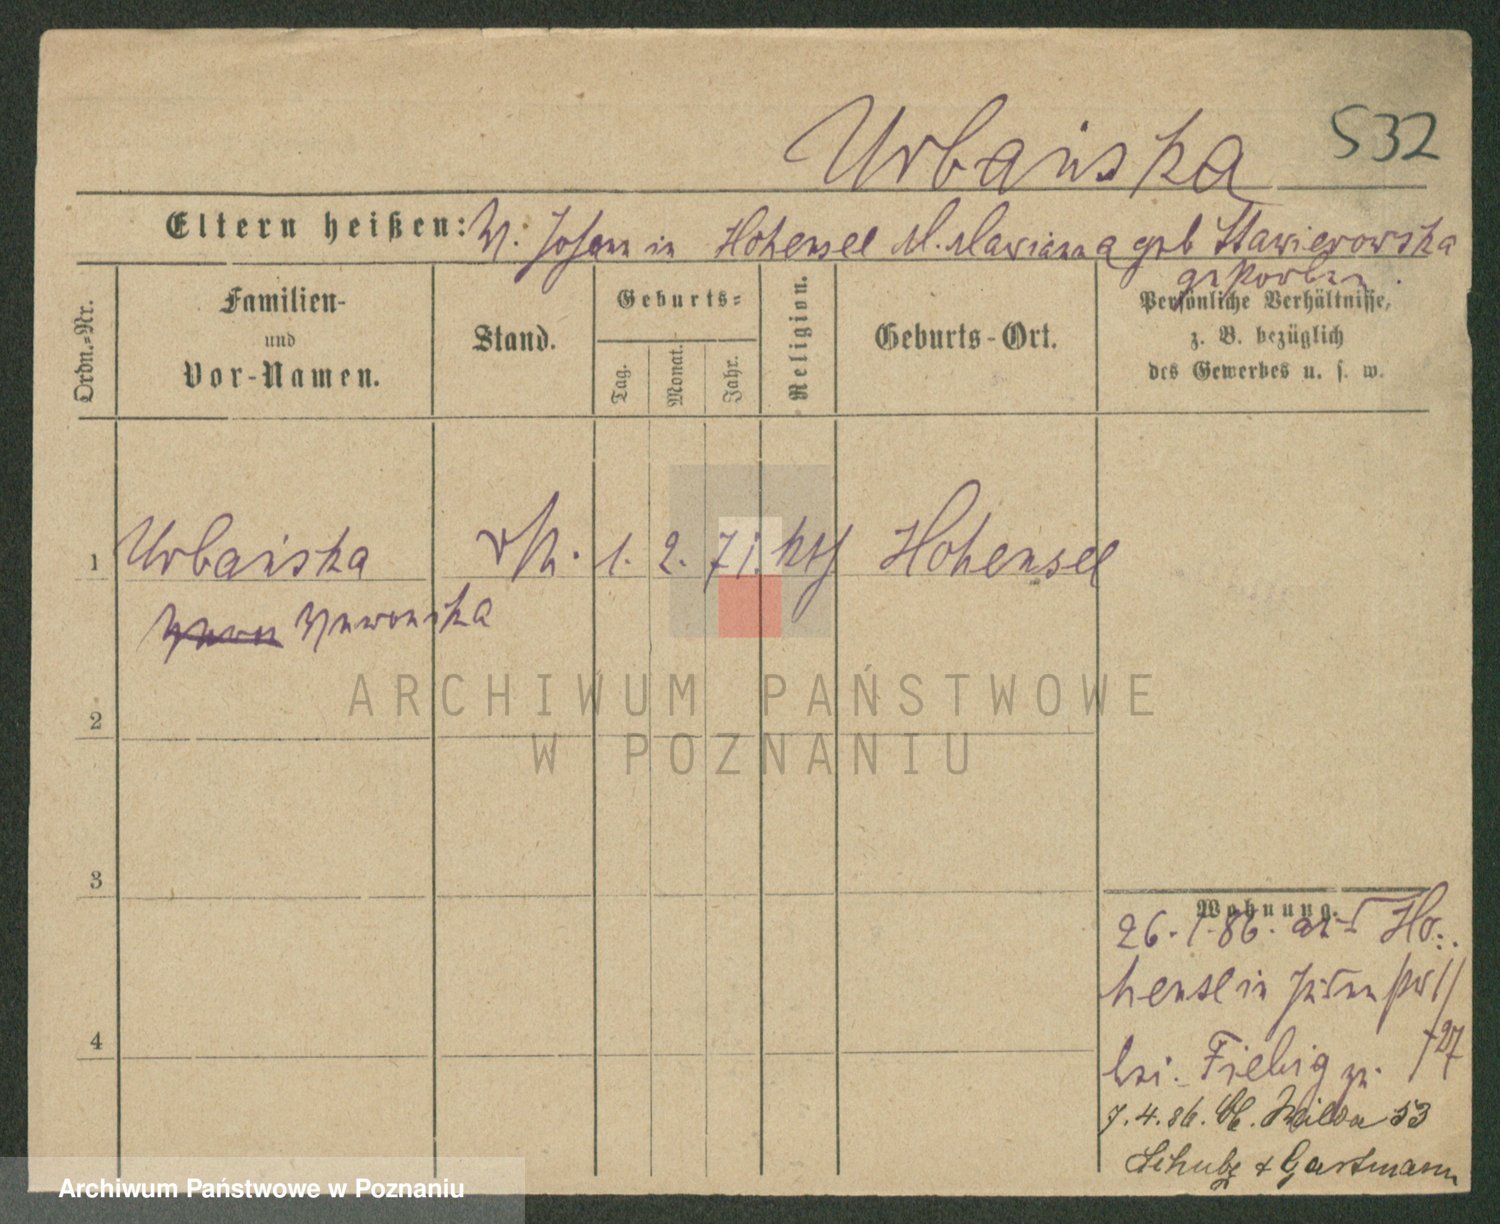 Urbainska 532
Eltern heißen: V. Johann in Hohensee M. Marianna geb Stawierowska
gestorben.
Ordn.-Nr.
Familien-
und
Vor-Namen.
Stand.
Geburts-
Tag.
Monat.
Jahr.
Religion.
Geburts-Ort.
Persönliche Verhältnisse,
z. B. bezüglich
des Gewerbes u. s. w.
1 Urbainska 1. 2. 71. kth Hohensee
2
3
4
Wohnung.
26. 1. 86. aus Ho-
hensee in
bei Fiebig
7. 4. 86. Ob. Wilda 53
Schulz & Gartmann
ARCHIWUM PAŃSTWOWE
W POZNANIU
Archiwum Państwowe w Poznaniu